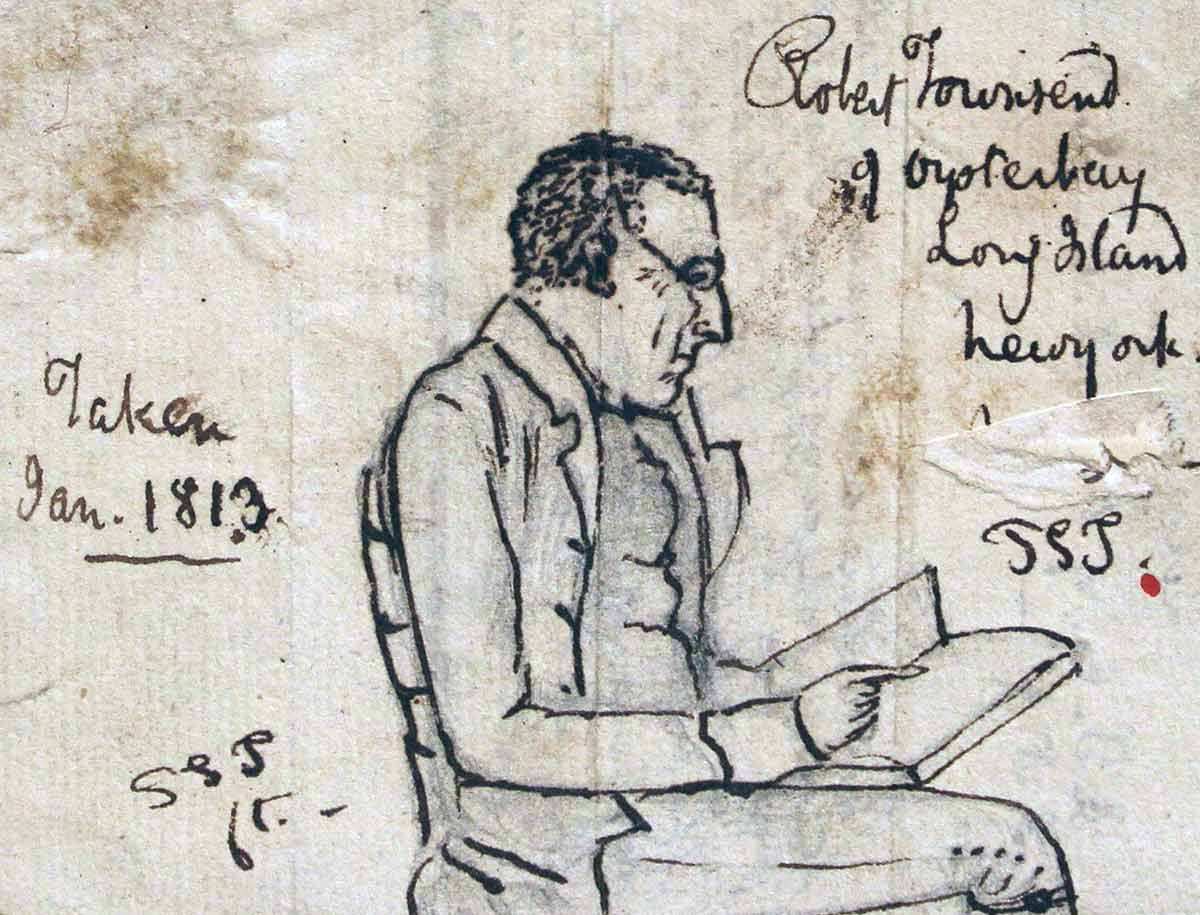 Robert Townsend
of oysterbay
Long Island
newyork.
Taken
Jan. 1813.